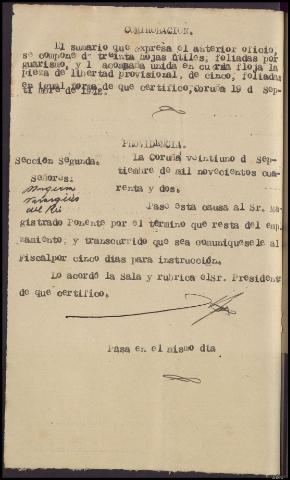 COMPROBACION.
El sumario que expresa el anterior oficio,
se compone d treinta hojas útiles, foliadas por
guarismo, y l acompaña unida en cuerda floja la
pieza de libertad provisional, de cinco, foliadas
en igual forma de que certifico, Coruña 19 d Sep-
tiembre de 1942.
PROVIDENCIA.
Sección Segunda.
La Coruña veintiuno d Sep-
Señores:
tiembre de mil novecientos cua-
renta y dos.
del Rio
Pase esta causa al Sr. Ma-
gistrado Ponente por el término que resta del emp
zamiento; y transcurrido que sea comuniquesele al
Fiscalpor cinco días para instrucción.
Lo acordó la Sala y rubrica elSr. President
de que certifico.
Pasa en el mismo dia